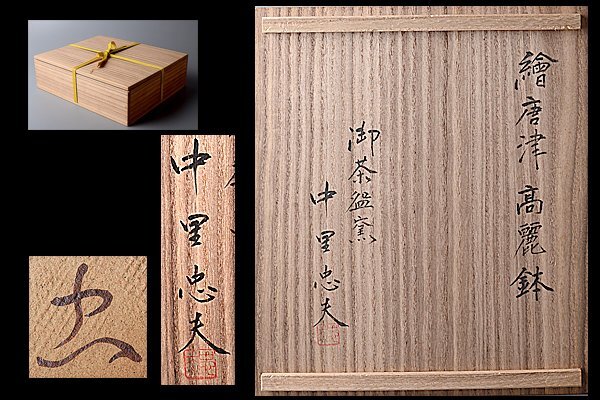 繪唐津 高麗鉢
御茶盌窯
中里忠夫
中里忠夫